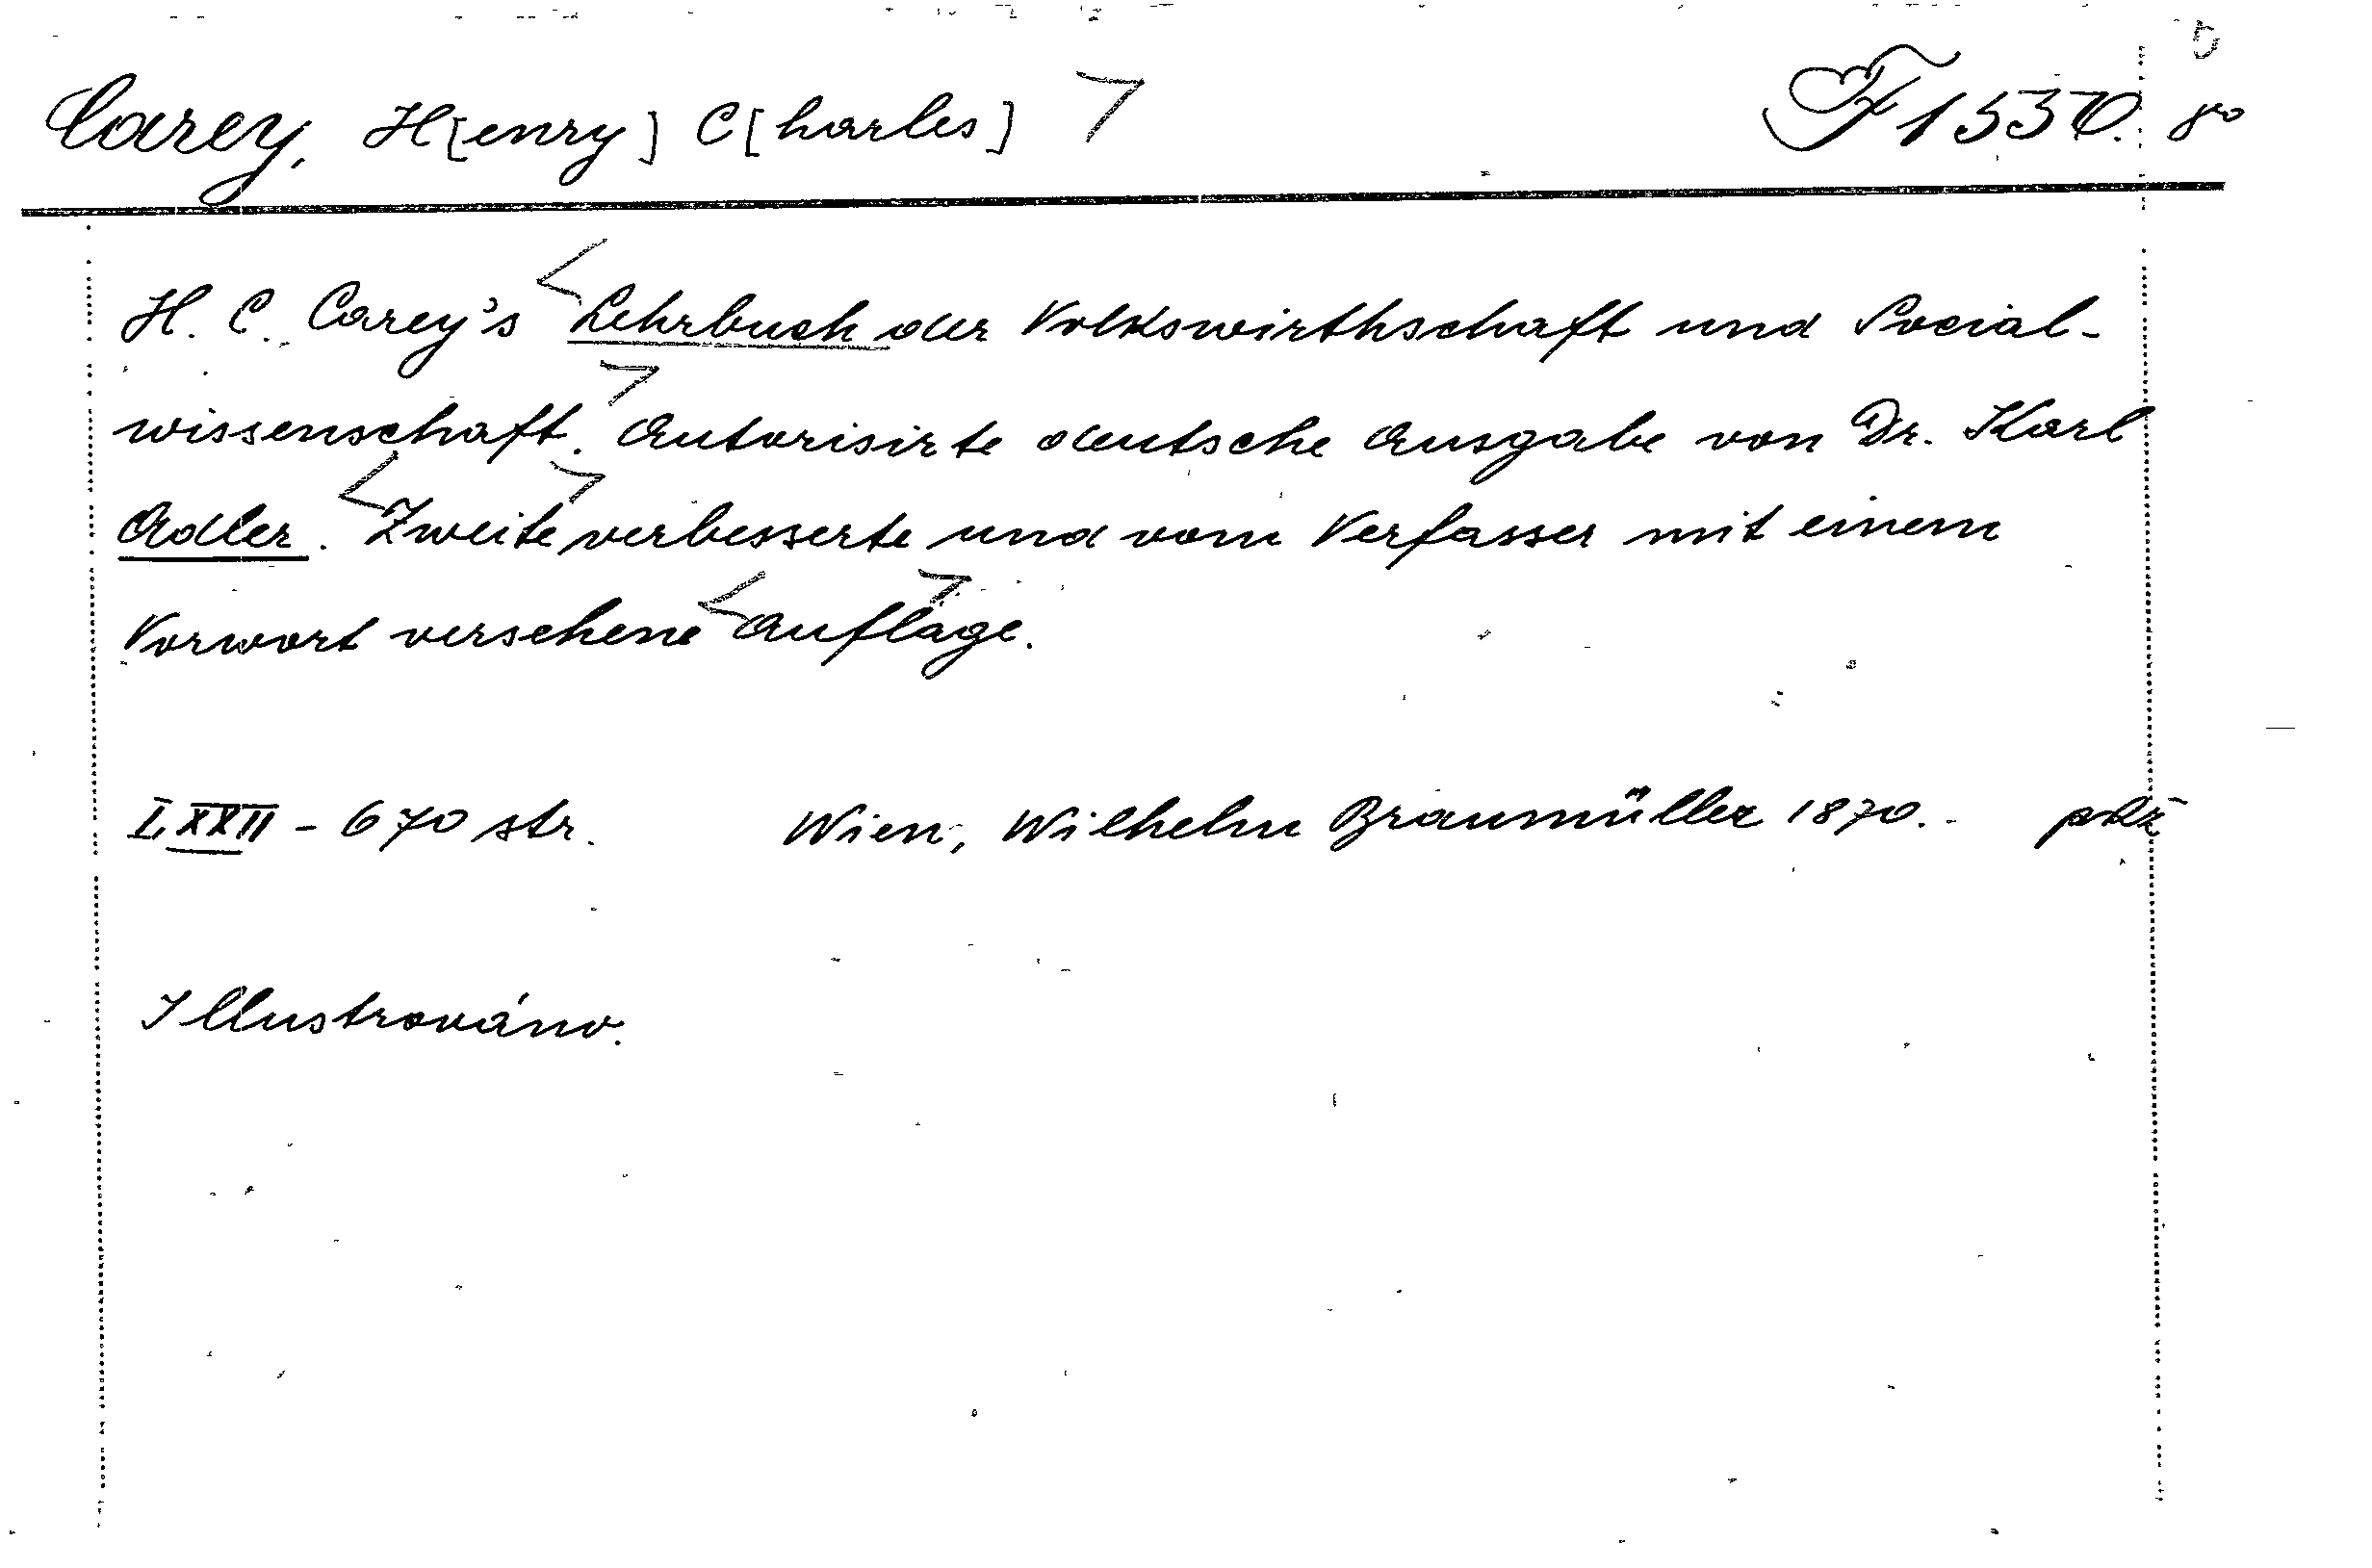 Carey, H[enry] C[harles] F 1530. 8°
H. C. Carey's Lehrbuch der Volkswirthschaft und Social-
wissenschaft. Autorisirte deutsche Ausgabe von Dr. Karl
Adler. Zweite verbesserte und vom Verfasser mit einem
Vorwort versehene Auflage.
I, XXII - 670 str. Wien, Wilhelm Braumüller 1870.
Illustrováno.